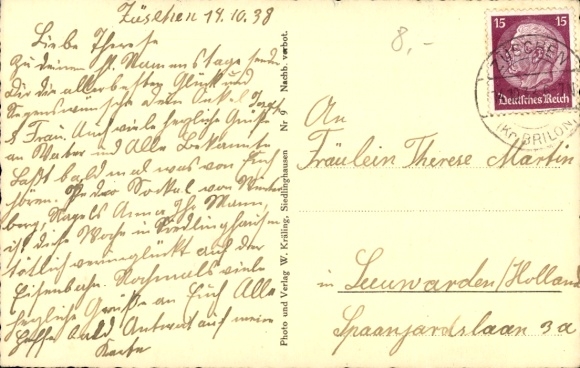 Züschen 14.10.38
Liebe Therese
Zu deinem hl. Namenstage sende
Dir die allerbesten Glück und
Segenswünsche dein Onkel Joseph
& Frau. Auch viele herzliche Grüße
an Mutter und Alle Bekannte
Laßt bald mal was von Euch
hören. von
Nagels Anna Ihr Mann,
ist diese Woche in Siedlinghausen
tötlich verunglückt auf der
Eisenbahn. Nochmals viele
herzliche Grüße an Euch Alle
Hoffe bald Antwort auf meine
Karte
Photo und Verlag W. Kräling, Siedlinghausen Nr 9 Nachb. verbot.
8,-
15 15
Deutsches Reich
ZÜSCHEN
(Kr. BRILON)
An
Fräulein Therese Martin
in Leeuwarden/Holland
Spaanjardslaan 3a